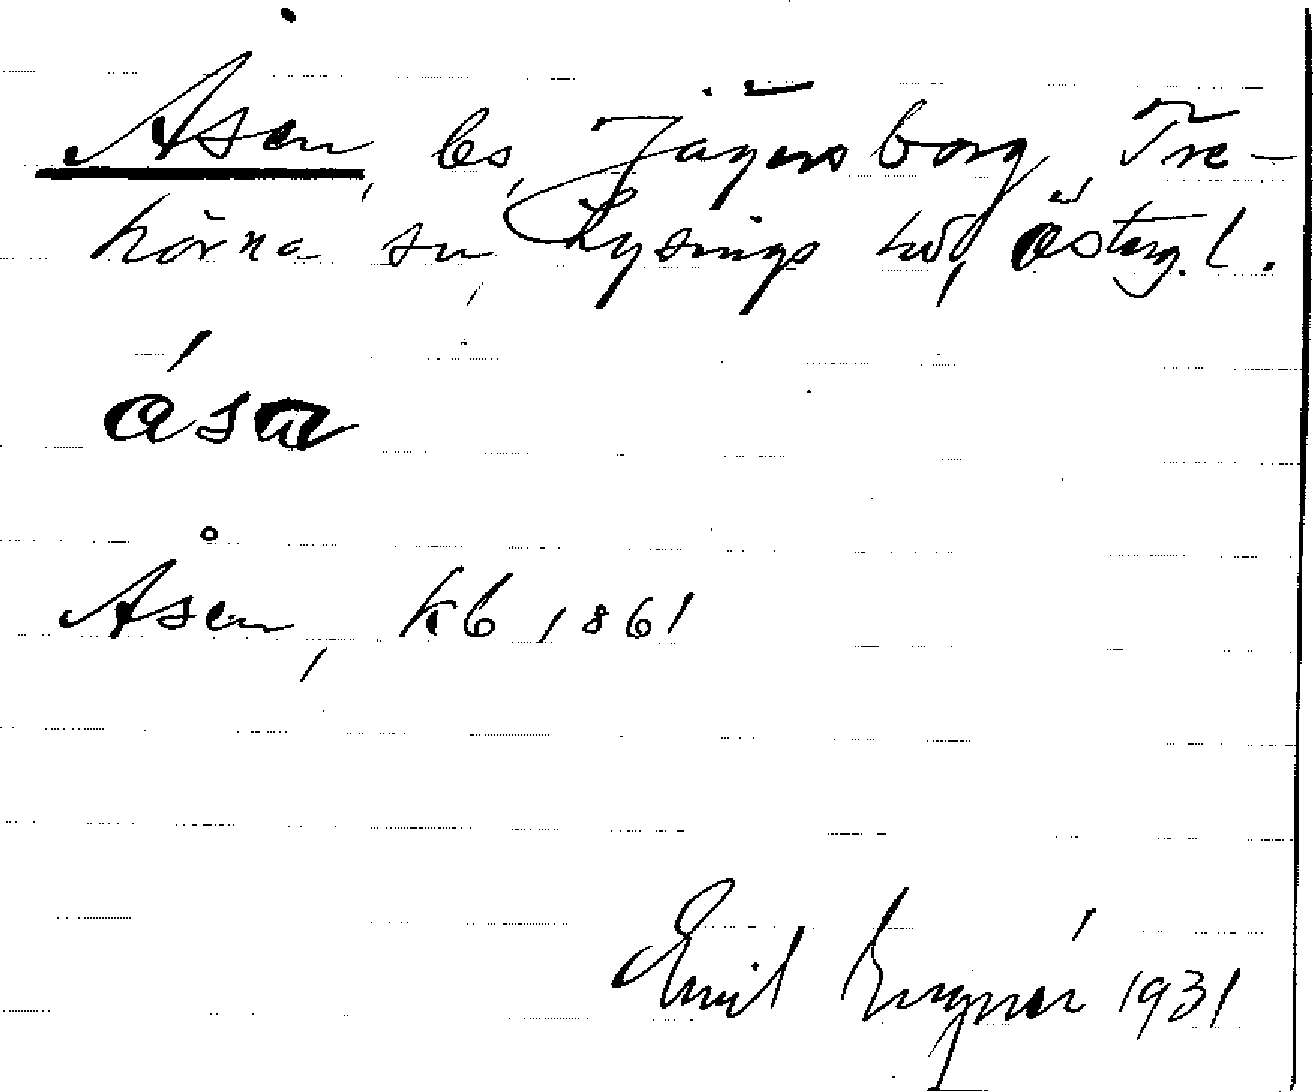 Åsen, ls, Jägersborg, Tre-
hörna sn, Lysings hd, Österg.l.
ásа
Åsen, kb 1861
Emil 1931